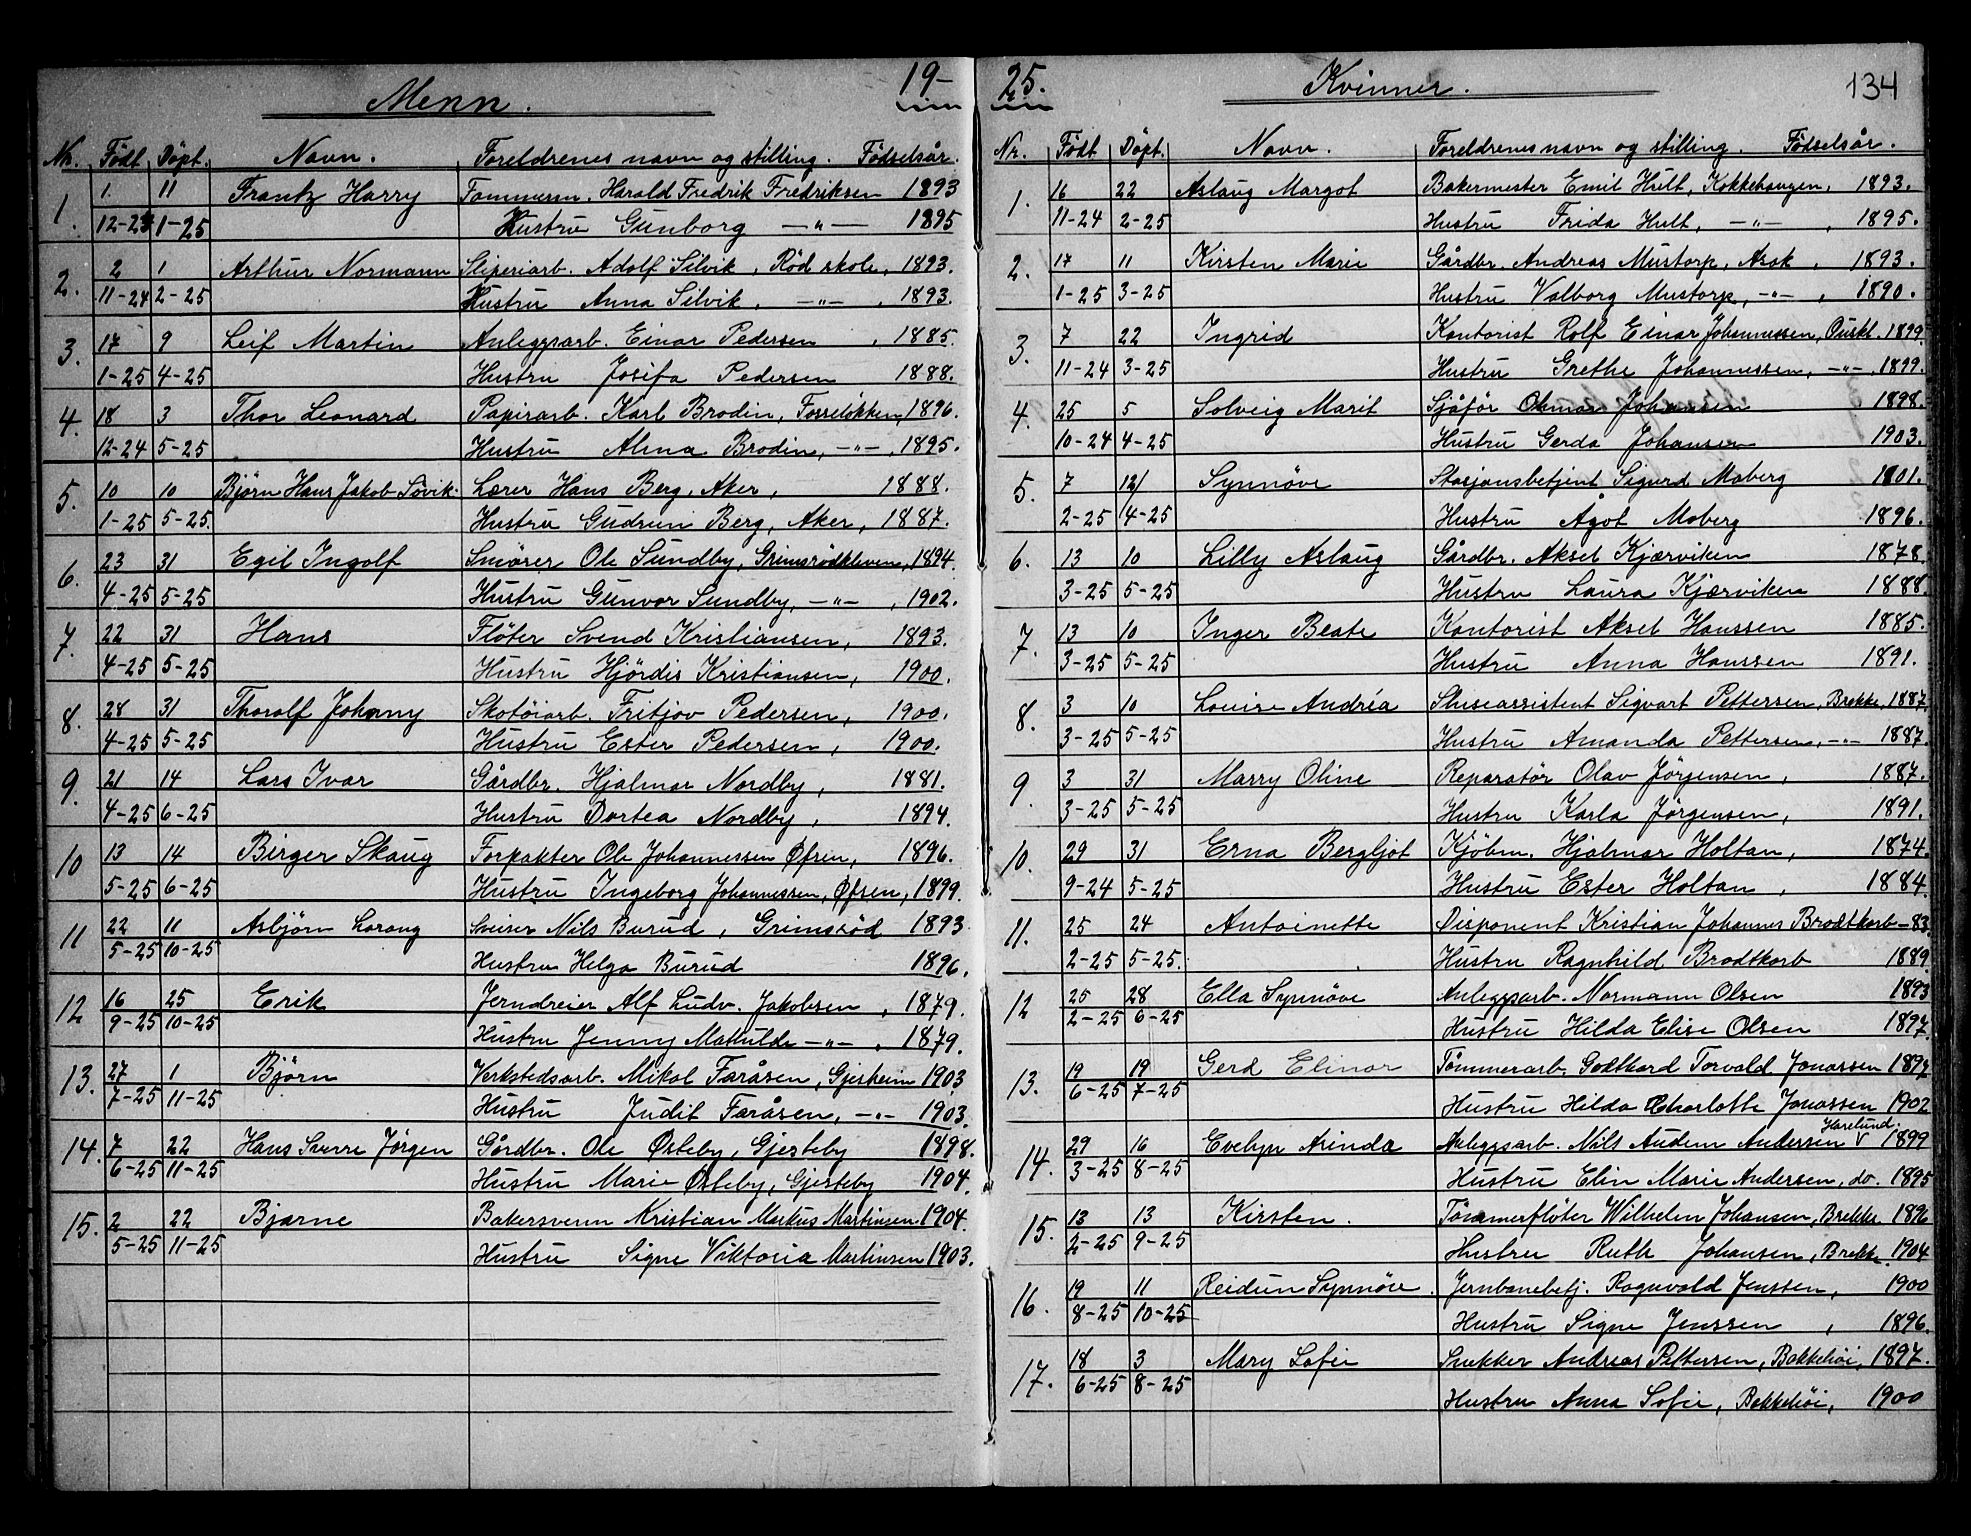 Menn. 19-
Nr. Født Döpt. Navn. Foreldrenes navn og stilling. Fødselsår.
1. 1 11 Frantz Harry Tommerm. Harald Fredrik Fredriksen 1893
12-24 1-25 Hustru Gunborg —"— 1895
2. 2 1 Arthur Normann Sliperiarb. Adolf Silvik, Röd skole, 1893.
11-24 2-25 Hustru Anna Silvik, —"—, 1893.
3. 17 9 Leif Martin Anleggsarb. Einar Pedersen, 1885.
1-25 4-25 Hustru Josefa Pedersen 1888.
4. 18 3 Thor Leonard Papirarb. Karl Brodin, Fosseløkken, 1896.
12-24 5-25 Hustru Alma Brodin, —"—, 1895.
5. 10 10 Bjørn Hans Jakob Sövik. Lærer Hans Berg, Aker, 1888.
1-25 5-25. Hustru Gudrun Berg, Aker, 1887.
6. 23 31 Egil Ingolf Smörer Ole Sundby, Grimsrödkleven, 1894.
4-25 5-25 Hustru Gunvor Sundby, —"—, 1902.
7. 22 31 Hans Flöter Svend Kristiansen, 1893.
4-25 5-25 Hustru Hjördis Kristiansen, 1900.
8. 28 31 Thoralf Johnny Skotöiarb. Fritjov Pedersen, 1900.
4-25 5-25 Hustru Ester Pedersen, 1900.
9. 21 14 Lars Ivar Gårdbr. Hjalmar Nordby, 1881.
4-25 6-25 Hustru Dortea Nordby, 1894.
10 13 14 Birger Skaug Forpakter Ole Johannessen Øfsen, 1896.
5-25 6-25 Hustru Ingeborg Johannessen, Øfsen, 1899.
11 22 11 Asbjörn Lorang Sveiser Nils Burud, Grimsröd 1893.
5-25 10-25 Hustru Helga Burud 1896.
12 16 25 Erik Jerndreier Alf Ludv. Jakobsen, 1879.
9-25 10-25 Hustru Jenny Mathilde —"—, 1879.
13. 27 1 Björn Verkstedsarb. Mikal Faråsen, Gjesheim 1903
7-25 11-25 Hustru Judit Faråsen, —"— 1903.
14. 7 22 Hans Sverre Jörgen Gårdbr. Ole Østeby, Gjesteby 1898.
6-25 11-25 Hustru Marie Østeby, Gjesteby 1904.
15. 2 22 Bjarne Bakersvenn Kristian Markus Martinsen. 1904.
5-25 11-25 Hustru Signe Viktoria Martinsen 1903.
25. Kvinner. 134
Nr. Födt Döpt. Navn. Foreldrenes navn og stilling. Födselsår.
1. 16 22 Aslaug Margot Bakermester Emil Hult, Kokkehaugen, 1893.
11-24 2-25 Hustru Frida Hult, —"—, 1895.
2. 17 11 Kirsten Marie Gårdbr. Andreas Mustorp, Asak, 1893.
1-25 3-25 Hustru Valborg Mustorp, —"—, 1890.
3. 7 22 Ingrid Kontorist Rolf Einar Johannessen, 1899.
11-24 3-25 Hustru Grethe Johannessen, —"—, 1899.
4. 25 5 Solveig Marit Sjåför Johansen 1898.
10-24 4-25 Hustru Gerda Johansen 1903.
5. 7 12/ Synnöve Stasjonsbetjent Sigurd Moberg 1801.
2-25 4-25 Hustru Ågot Moberg 1896.
6. 13 10 Lilly Aslaug Gårdbr. Aksel Kjærviken 1878.
3-25 5-25 Hustru Laura Kjærviken 1888.
7. 13 10 Inger Beate Kontorist Aksel Hanssen 1885.
3-25 5-25 Hustru Anna Hanssen 1891.
8. 3 10 Louise Andréa Sluseassistent Sigvart Pettersen, Brekke, 1887.
3-25 5-25 Hustru Amanda Pettersen, —"— 1887.
9. 3 31 Marry Oline Reparatör Olav Jörgensen, 1887.
3-25 5-25 Hustru Karla Jörgensen, 1891.
10. 29 31 Erna Bergljot Kjöbm. Hjalmar Holtan, 1874.
9-24 5-25 Hustru Ester Holtan, 1884.
11. 25 24 Antoinette Disponent Kristian Johannes Brodtkorb - 83.
2-25 5-25. Hustru Ragnhild Brodtkorb 1889.
12 25 28 Ella Synnöve Anleggsarb. Normann Olsen 1893
2-25 6-25 Hustru Hilda Elise Olsen 1897.
13. 19 19 Gerd Elinor Tömmerarb. Godthard Torvald Jonassen 1897
6-25 7-25 Hustru Hilda Charlotte Jonassen 1902
14. 29 16 Evelyn Arinda Anleggsarb. Nils Audem Andersen V Harelund. 1899
3-25 8-25 Hustru Elin Marie Andersen, do. 1895
15. 13 13 Kirsten. Tömmerflöter Wilhelm Johansen, Brekke. 1896
2-25 9-25 Hustru Ruth Johansen, Brekke. 1904
16. 19 11 Reidun Synnöve. Jernbanebetj. Ragnvald Jenssen, 1900
8-25 10-25 Hustru Signe Jenssen, 1896.
17. 18 3 Mary Sofie Snekker Andreas Pettersen, Bakkehöi, 1897.
6-25 8-25 Hustru Anna Sofie, Bakkehöi, 1900